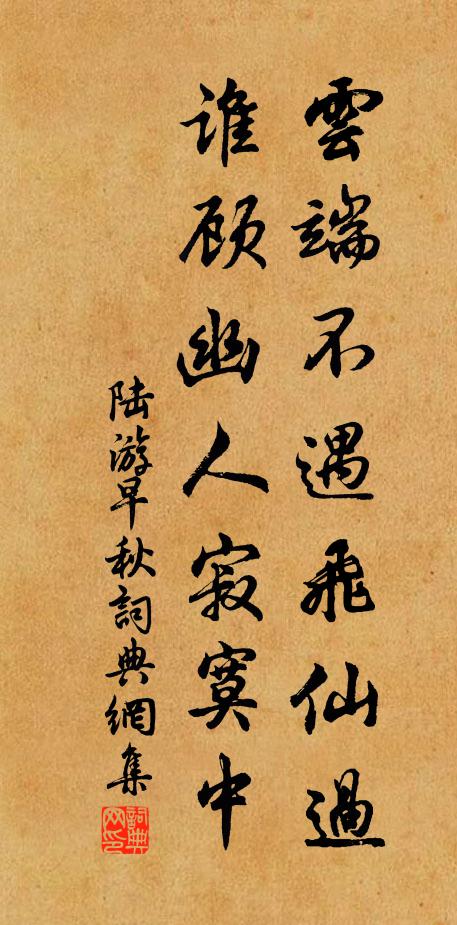 雲端不遇飛仙過
誰顾幽人寂寞中
陆游早秋詞典網集
詞典网印